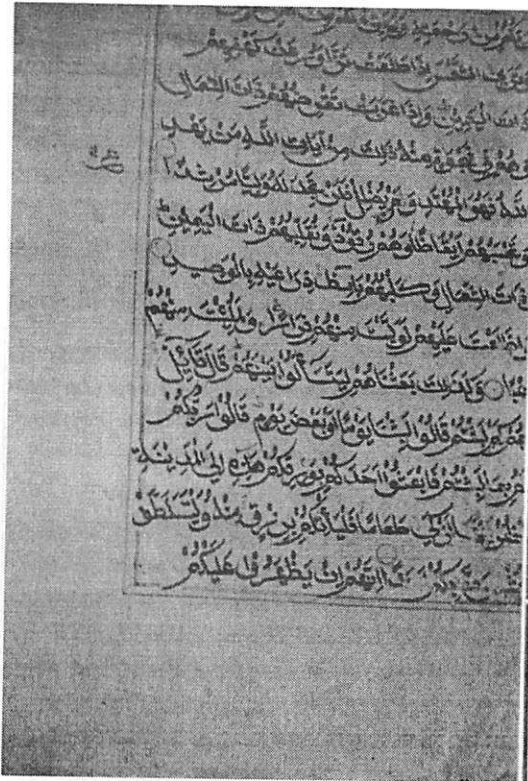 من رحمته ويهيئ لكم من
وترى الشمس إذا طلعت تزاور عن كهفهم
ذات اليمين وإذا غربت تقرضهم ذات الشمال
وهم في فجوة منه ذلك من آيات الله من يهد
الله فهو المهتد ومن يضلل فلن تجد له وليا مرشدا
وتحسبهم أيقاظا وهم رقود ونقلبهم ذات اليمين
وذات الشمال وكلبهم باسط ذراعيه بالوصيد
اطلعت عليهم لوليت منهم فرارا ولملئت منهم
رعبا وكذلك بعثناهم ليتسألوا بينهم قال قائل
منهم كم لبثتم قالوا لبثنا يوما أو بعض يوم قالوا ربكم
بما لبثتم فابعثوا أحدكم بورقكم هذه إلى المدينة
أزكى طعاما فليأتكم برزق منه وليتلطف
بكم أحدا إنهم إن يظهروا عليكم